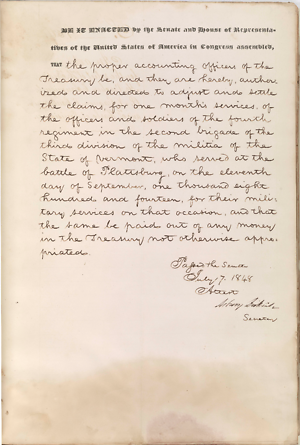 BE IT ENACTED by the Senate and House of Representa-
tives of the United States of America in Congress assembled,
THAT the proper accounting officers of the
Treasury be, and they are hereby, author-
ized and directed to adjust and settle
the claims, for one month's services, of
the officers and soldiers of the fourth
regiment in the second brigade of the
third division of the militia of the
State of Vermont, who served at the
battle of Plattsburg, on the eleventh
day of September, one thousand eight
hundred and fourteen, for their mili-
tary services on that occasion, and that
the same be paid out of any money
in the Treasury not otherwise appro-
priated.
Passed the Senate
July 17. 1848
Attest
Secretary